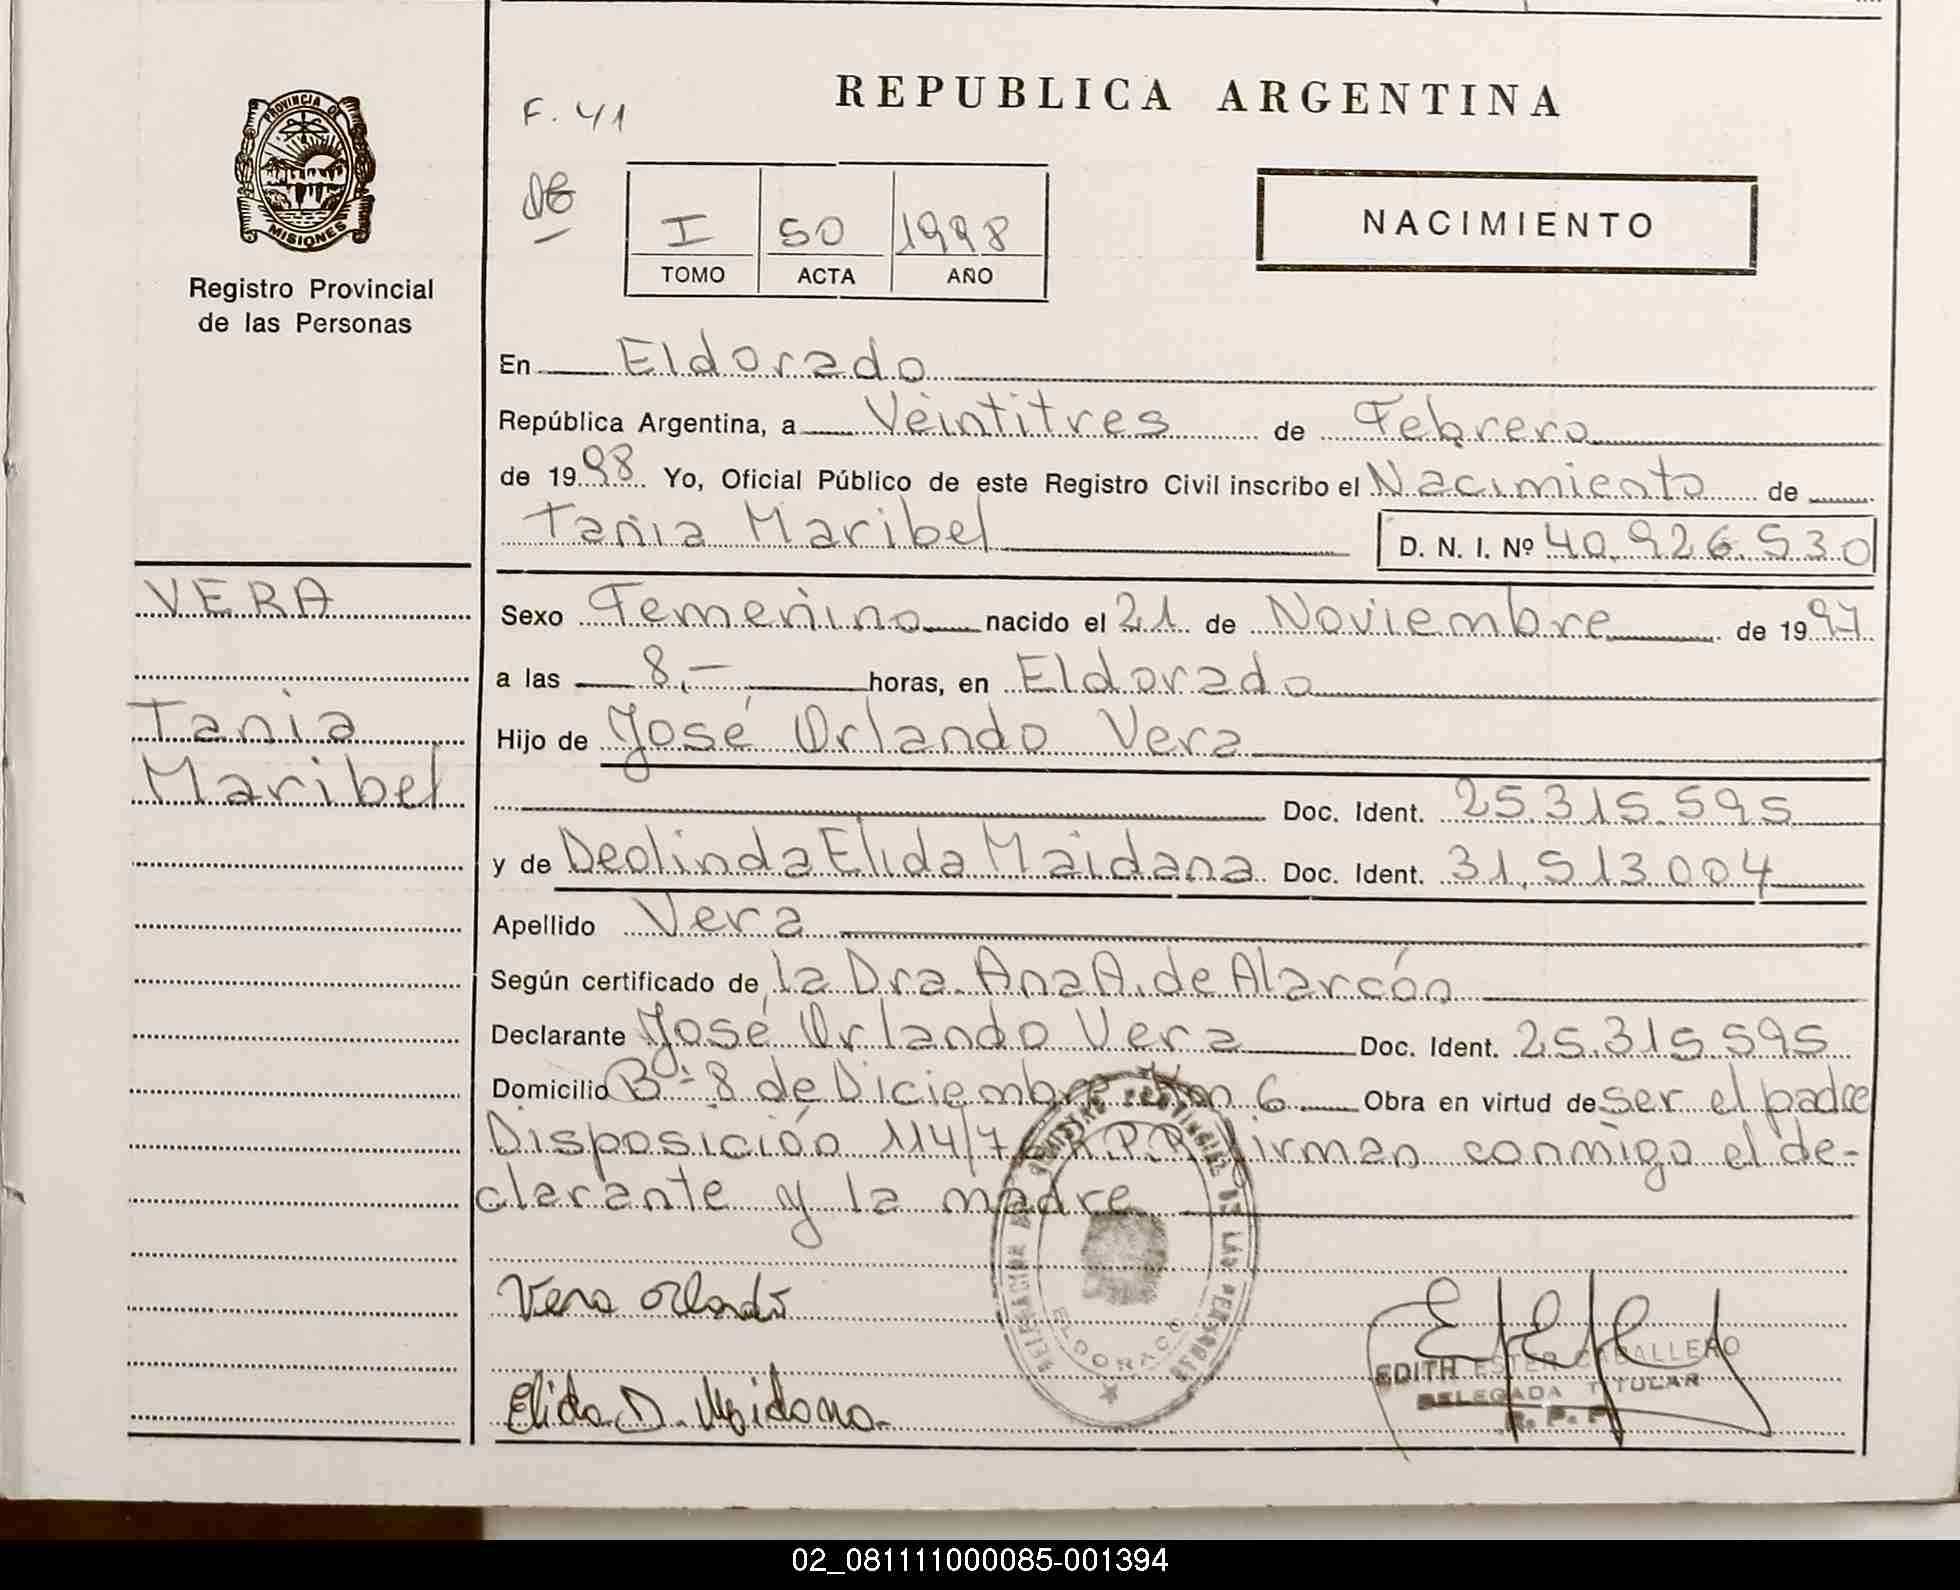 PROVINCIA DE
MISIONES
Registro Provincial
de las Personas
VERA
Tania
Maribel
REPUBLICA ARGENTINA
F. 41
I 50 1998
TOMO ACTA AÑO
NACIMIENTO
En Eldorado
República Argentina, a Veintitres de Febrero
de 1998 Yo, Oficial Público de este Registro Civil inscribo el Nacimiento de
Tania Maribel D. N. I. Nº 40.926.530
Sexo Femenino nacido el 21 de Noviembre de 1997
a las 8,- horas, en Eldorado
Hijo de José Orlando Vera
Doc. Ident. 25.315.595
y de Deolinda Elida Maidana Doc. Ident. 31.513.004
Apellido Vera
Según certificado de la Dra. Ana A. de Alarcón
Declarante José Orlando Vera Doc. Ident. 25.315.595
Domicilio Bº 8 de Diciembre Km 6 Obra en virtud de ser el padre
Disposición 114/7 R.P.P. Firman conmigo el de-
clarante y la madre
Vera Orlando
Elida D. Maidana
ELDORADO
DE LAS PERSONAS
EDITH ESTER CABALLERO
DELEGADA TITULAR
R. P. P.
02_081111000085-001394